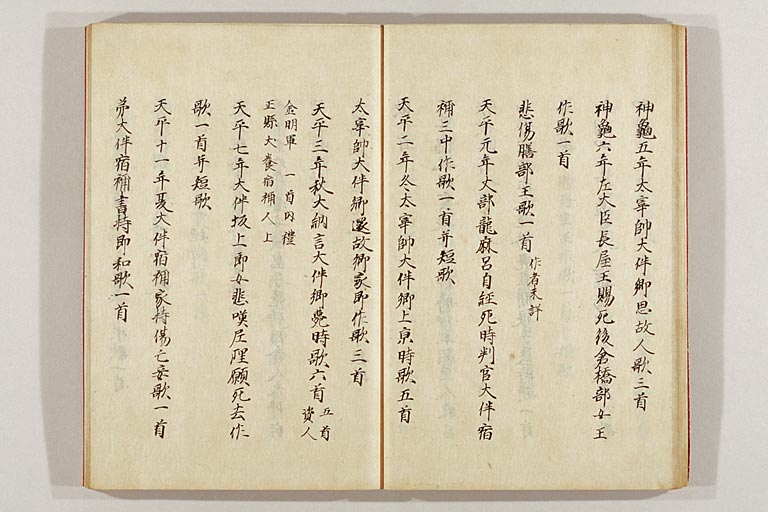 神龜五年太宰帥大伴卿思故人歌三首
神龜六年左大臣長屋王賜死後倉橋部女王
作歌一首
悲傷膳部王歌一首 作者未詳
天平元年丈部龍麻呂自經死時判官大伴宿
祢三中作歌一首并短歌
天平二年冬太宰帥大伴卿上京時歌五首
太宰帥大伴卿還故鄉家即作歌三首
天平三年秋大納言大伴卿薨時歌六首 五首資人
金明軍 一首内禮
正縣犬養宿祢人上
天平七年大伴坂上郎女悲嘆尼理願死去作
歌一首并短歌
天平十一年夏大伴宿祢家持傷亡妾歌一首
弟大伴宿祢書持即和歌一首